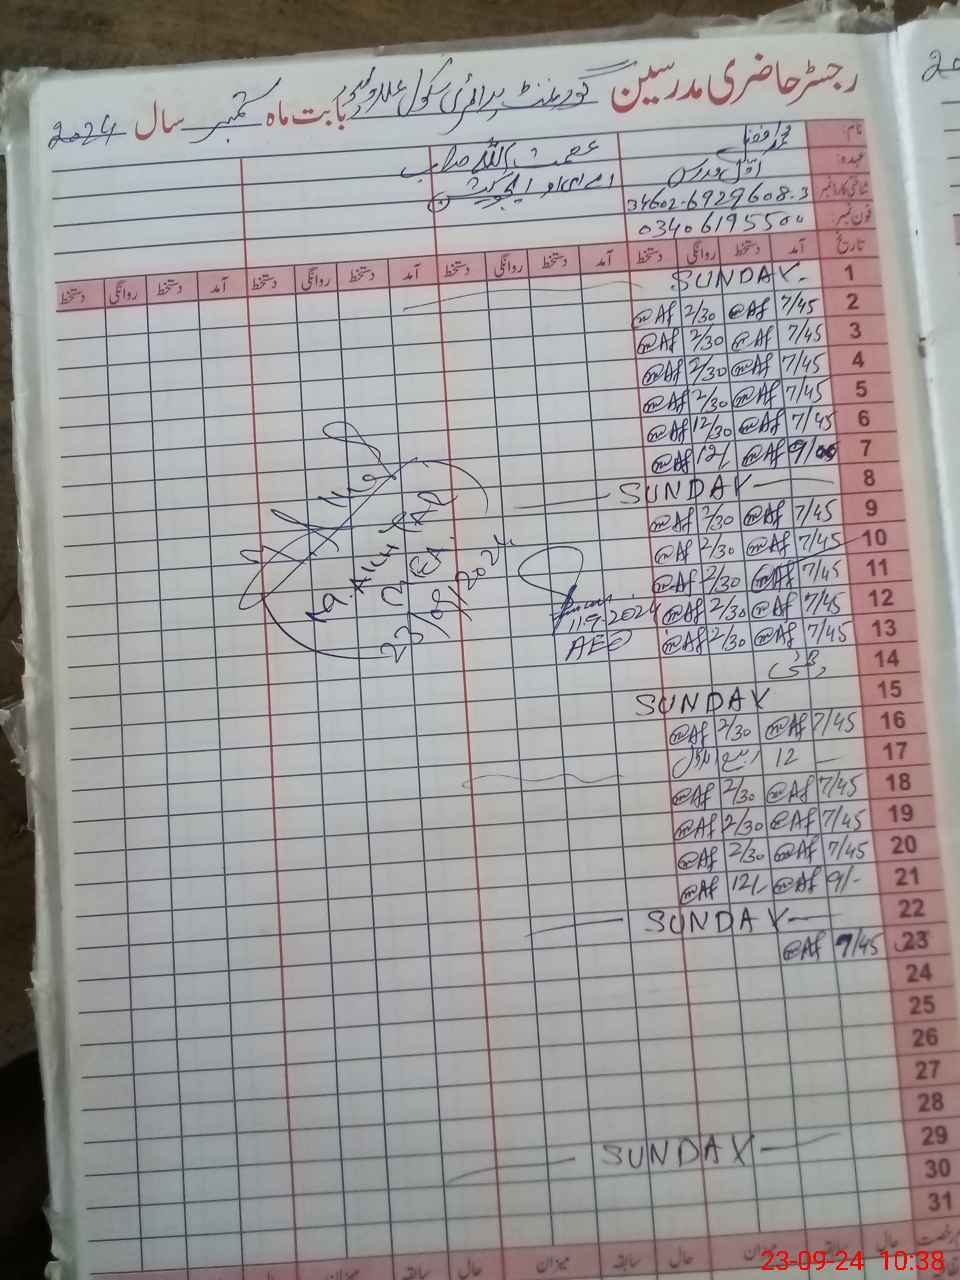 رجسٹر حاضری مدرسین گورنمنٹ پرائمری سکول بابت ماہ ستمبر سال 2024
نام:
عہدہ: اول مدرس
شناختی کارڈ نمبر 34602-6929608-3
فون نمبر: 03406195500
تاریخ آمد دستخط روانگی دستخط آمد دستخط روانگی دستخط آمد دستخط روانگی دستخط آمد دستخط روانگی دستخط
1 SUNDAY
2 7/45 @Af 2/30 @Af
3 7/45 @Af 2/30 @Af
4 7/45 @Af 2/30 @Af
5 7/45 @Af 2/30 @Af
6 7/45 @Af 12/30 @Af
7 9/00 @Af 12/ @Af
8 SUNDAY
9 7/45 @Af 2/30 @Af
10 7/45 @Af 2/30 @Af
11 7/45 @Af 2/30 @Af
12 7/45 @Af 2/30 @Af
11-9-2024
13 7/45 @Af 2/30 @Af
AEO
23/09/2024
14
15 SUNDAY
16 7/45 @Af 2/30 @Af
17 12 ربیع الاول
18 7/45 @Af 2/30 @Af
19 7/45 @Af 2/30 @Af
20 7/45 @Af 2/30 @Af
21 9/- @Af 12/- @Af
22 SUNDAY
23 7/45 @Af
24
25
26
27
28
29 SUNDAY
30
31
رخصت حالی سابقہ میزان حالی سابقہ میزان حالی سابقہ میزان
23-09-24 10:38